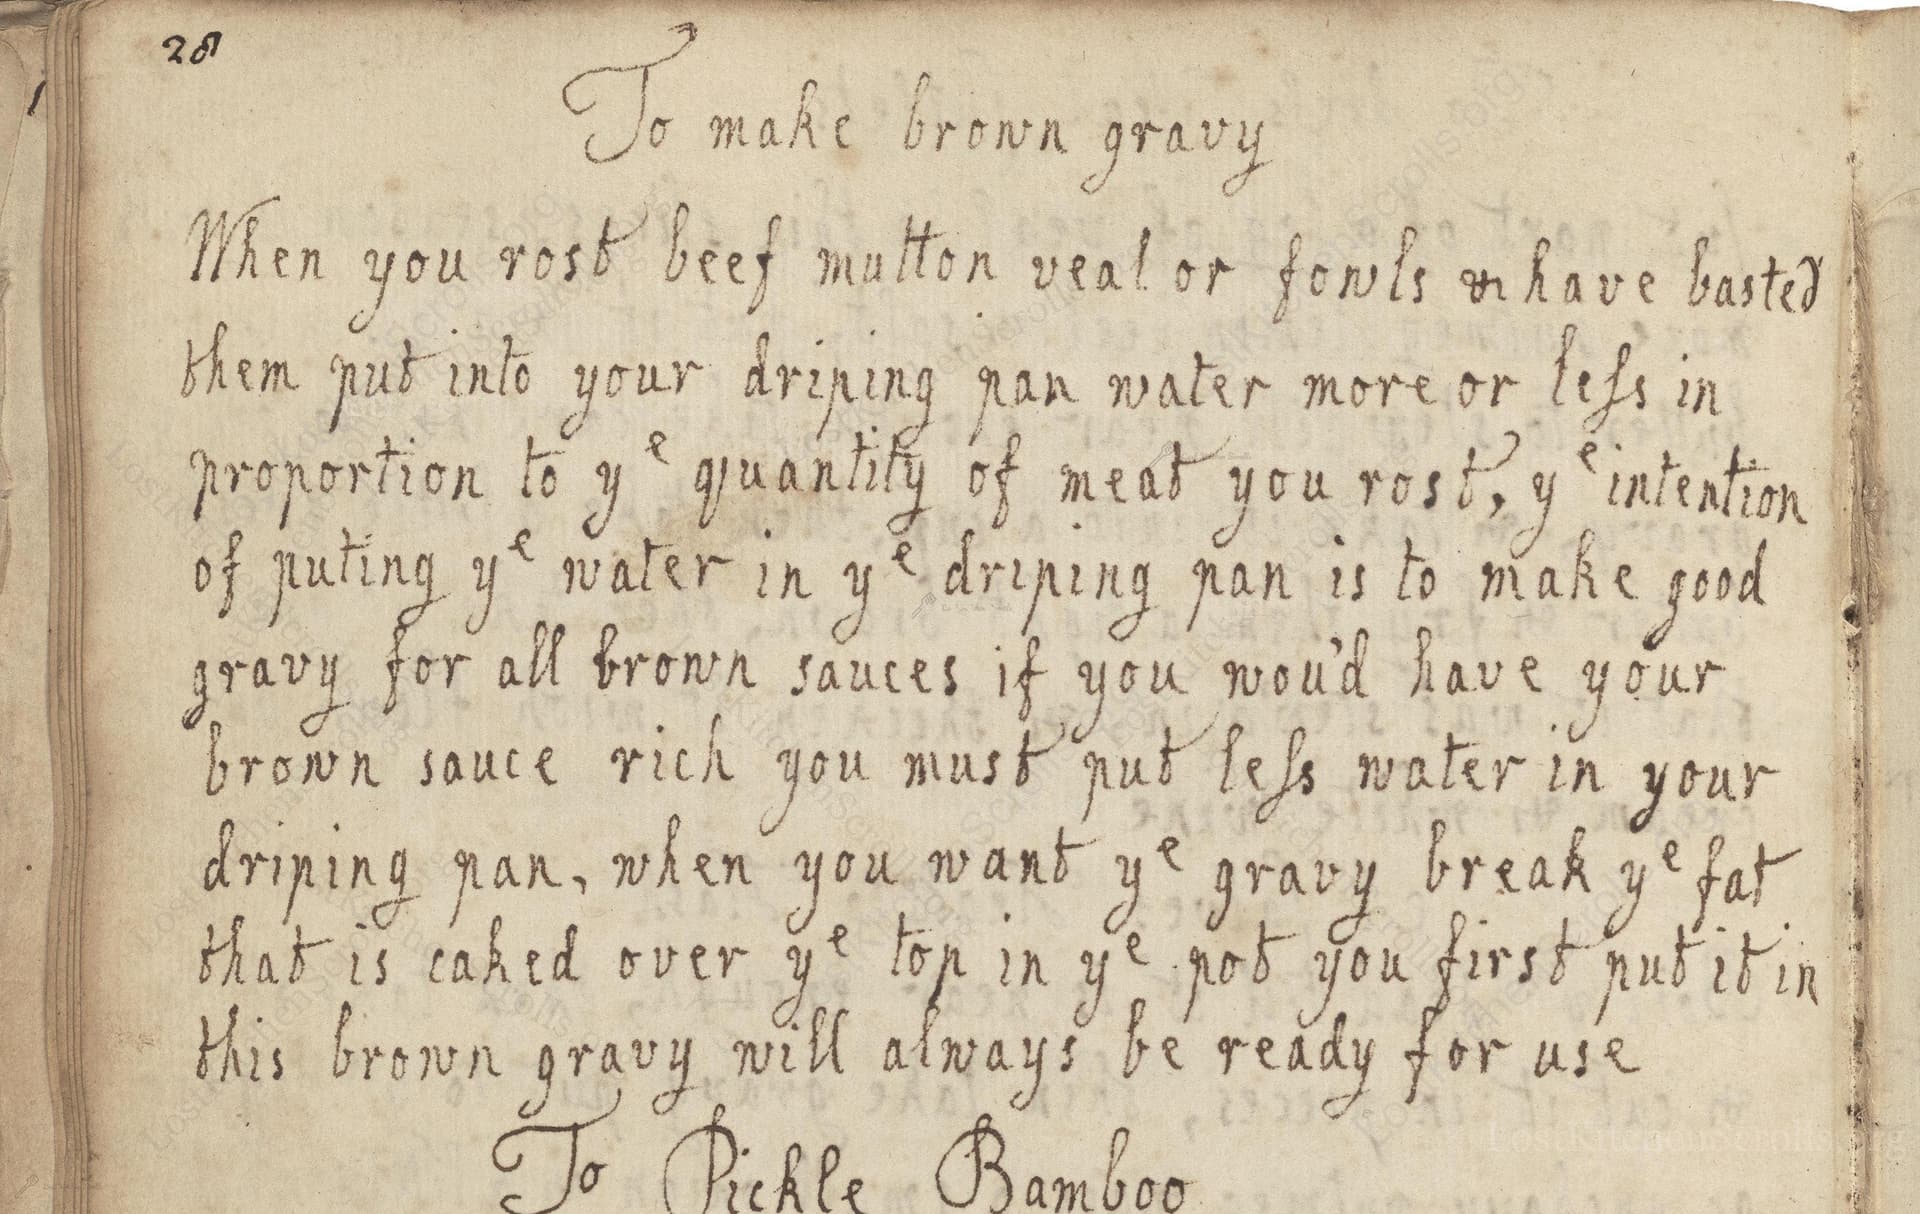 28
To make brown gravy
When you rost beef mutton veal or fowls & have basted
them put into your driping pan water more or leſs in
proportion to yᵉ quantity of meat you rost, yᵉ intention
of puting yᵉ water in yᵉ driping pan is to make good
gravy for all brown sauces if you wou'd have your
brown sauce rich you must put leſs water in your
driping pan, when you want yᵉ gravy break yᵉ fat
that is caked over yᵉ top in yᵉ pot you first put it in
this brown gravy will always be ready for use
To Pickle Bamboo